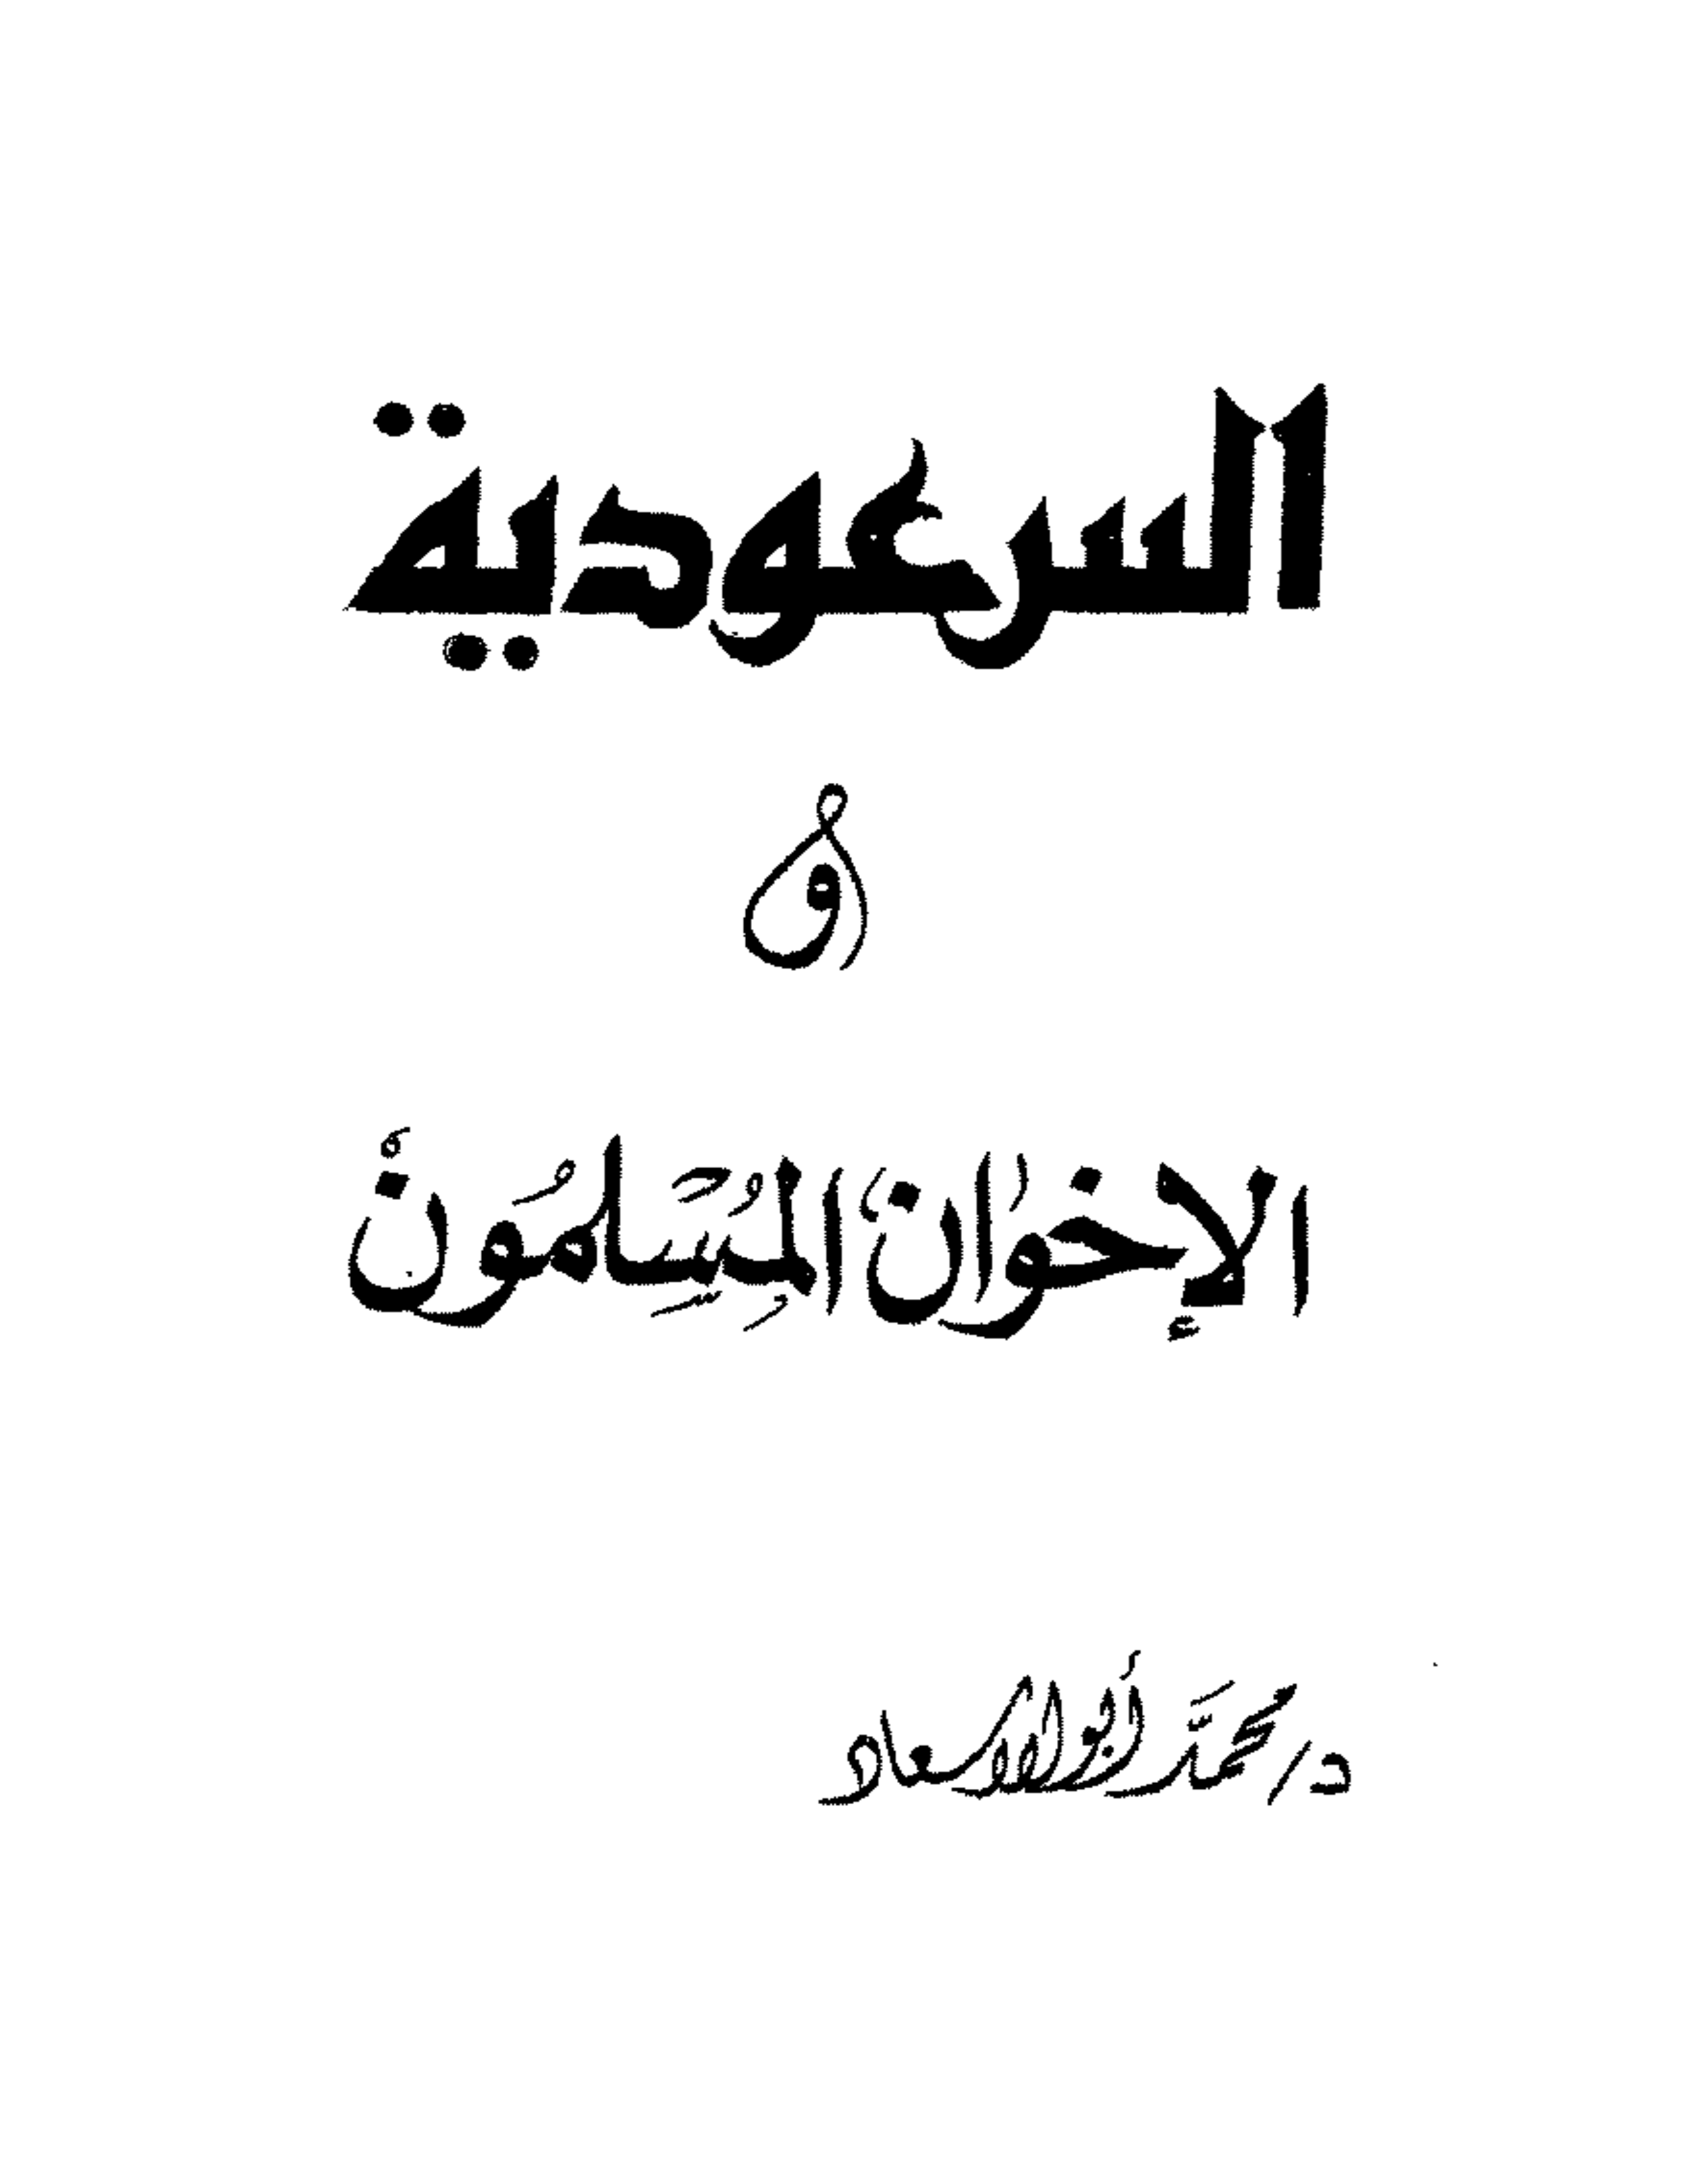 السعودية
و
الإخوان المسلمون
د/ محمد أبو الإسعاد